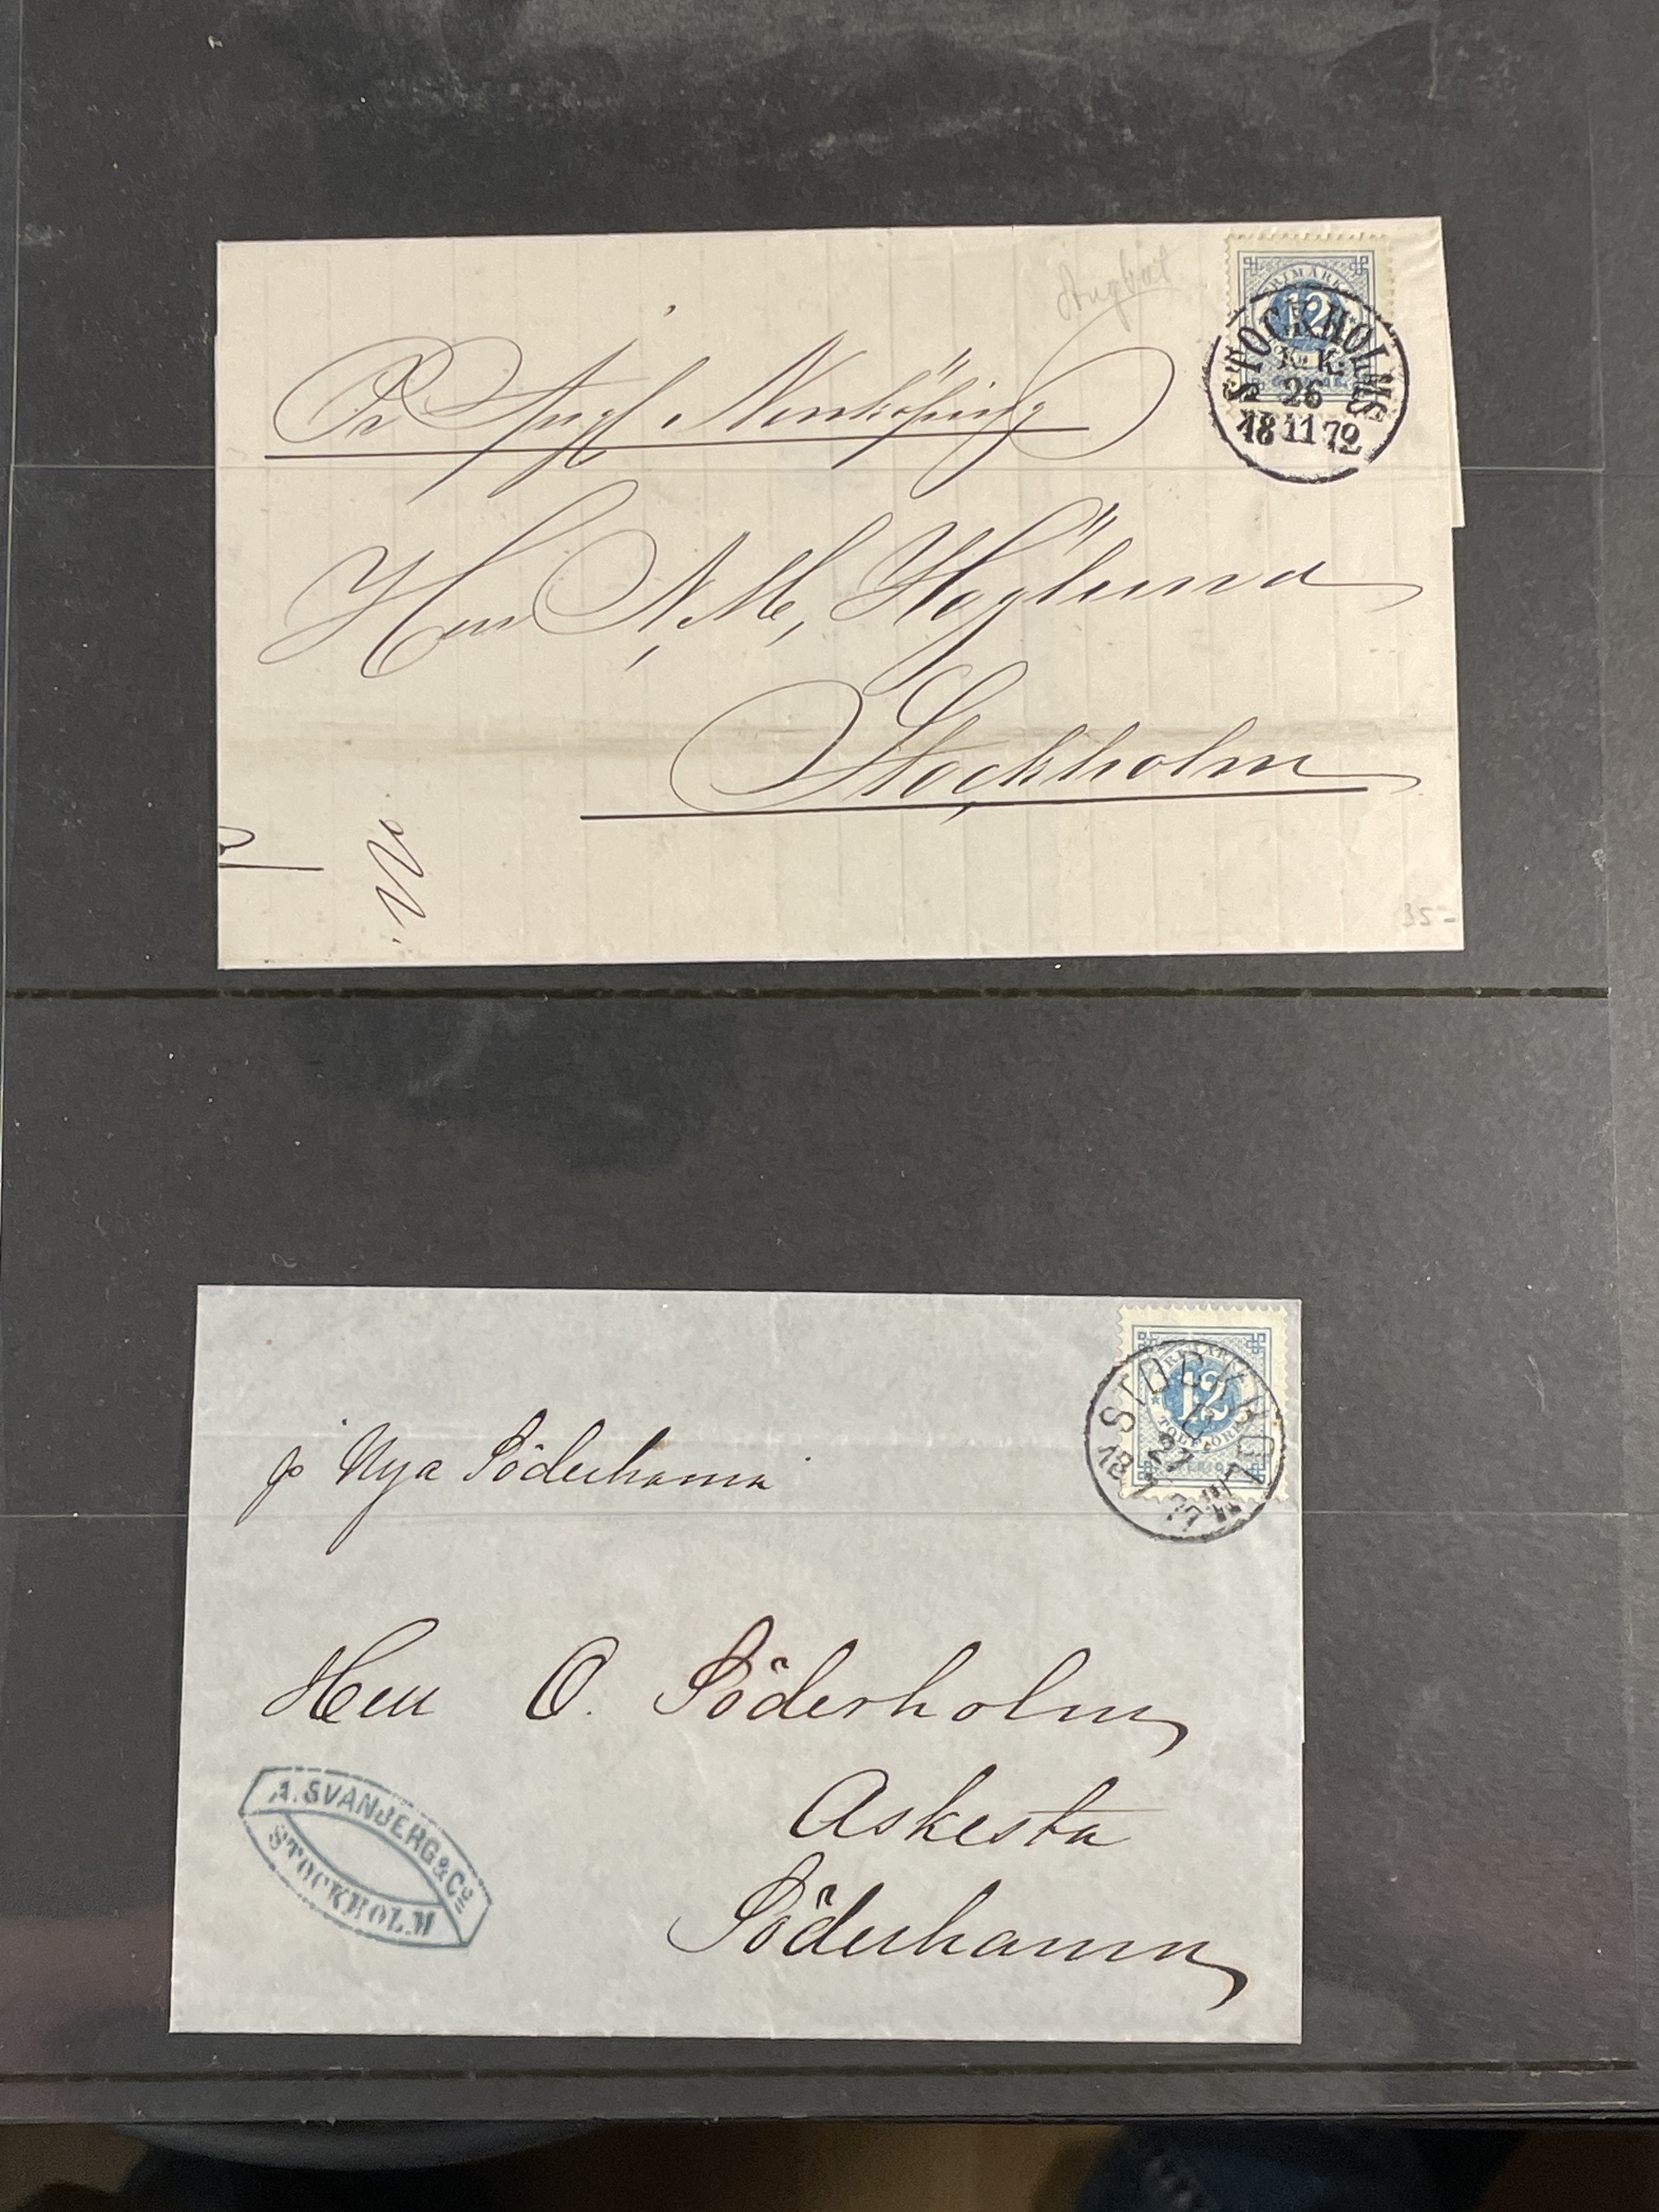 Ångbåt
FRIMÄRKE
12
STOCKHOLM
K. K.
26
18 11 72
Pr Ångf. Norrköping
Herr N, M, Höglund
Stockholm
35-
FRIMÄRKE
12
TOLF ÖRE
SVERIGE
STOCKHOLM
18
pr Nya Söderhamn
Herr O. Söderholm
Askesta
Söderhamn
A. SVANBERG & Co
STOCKHOLM